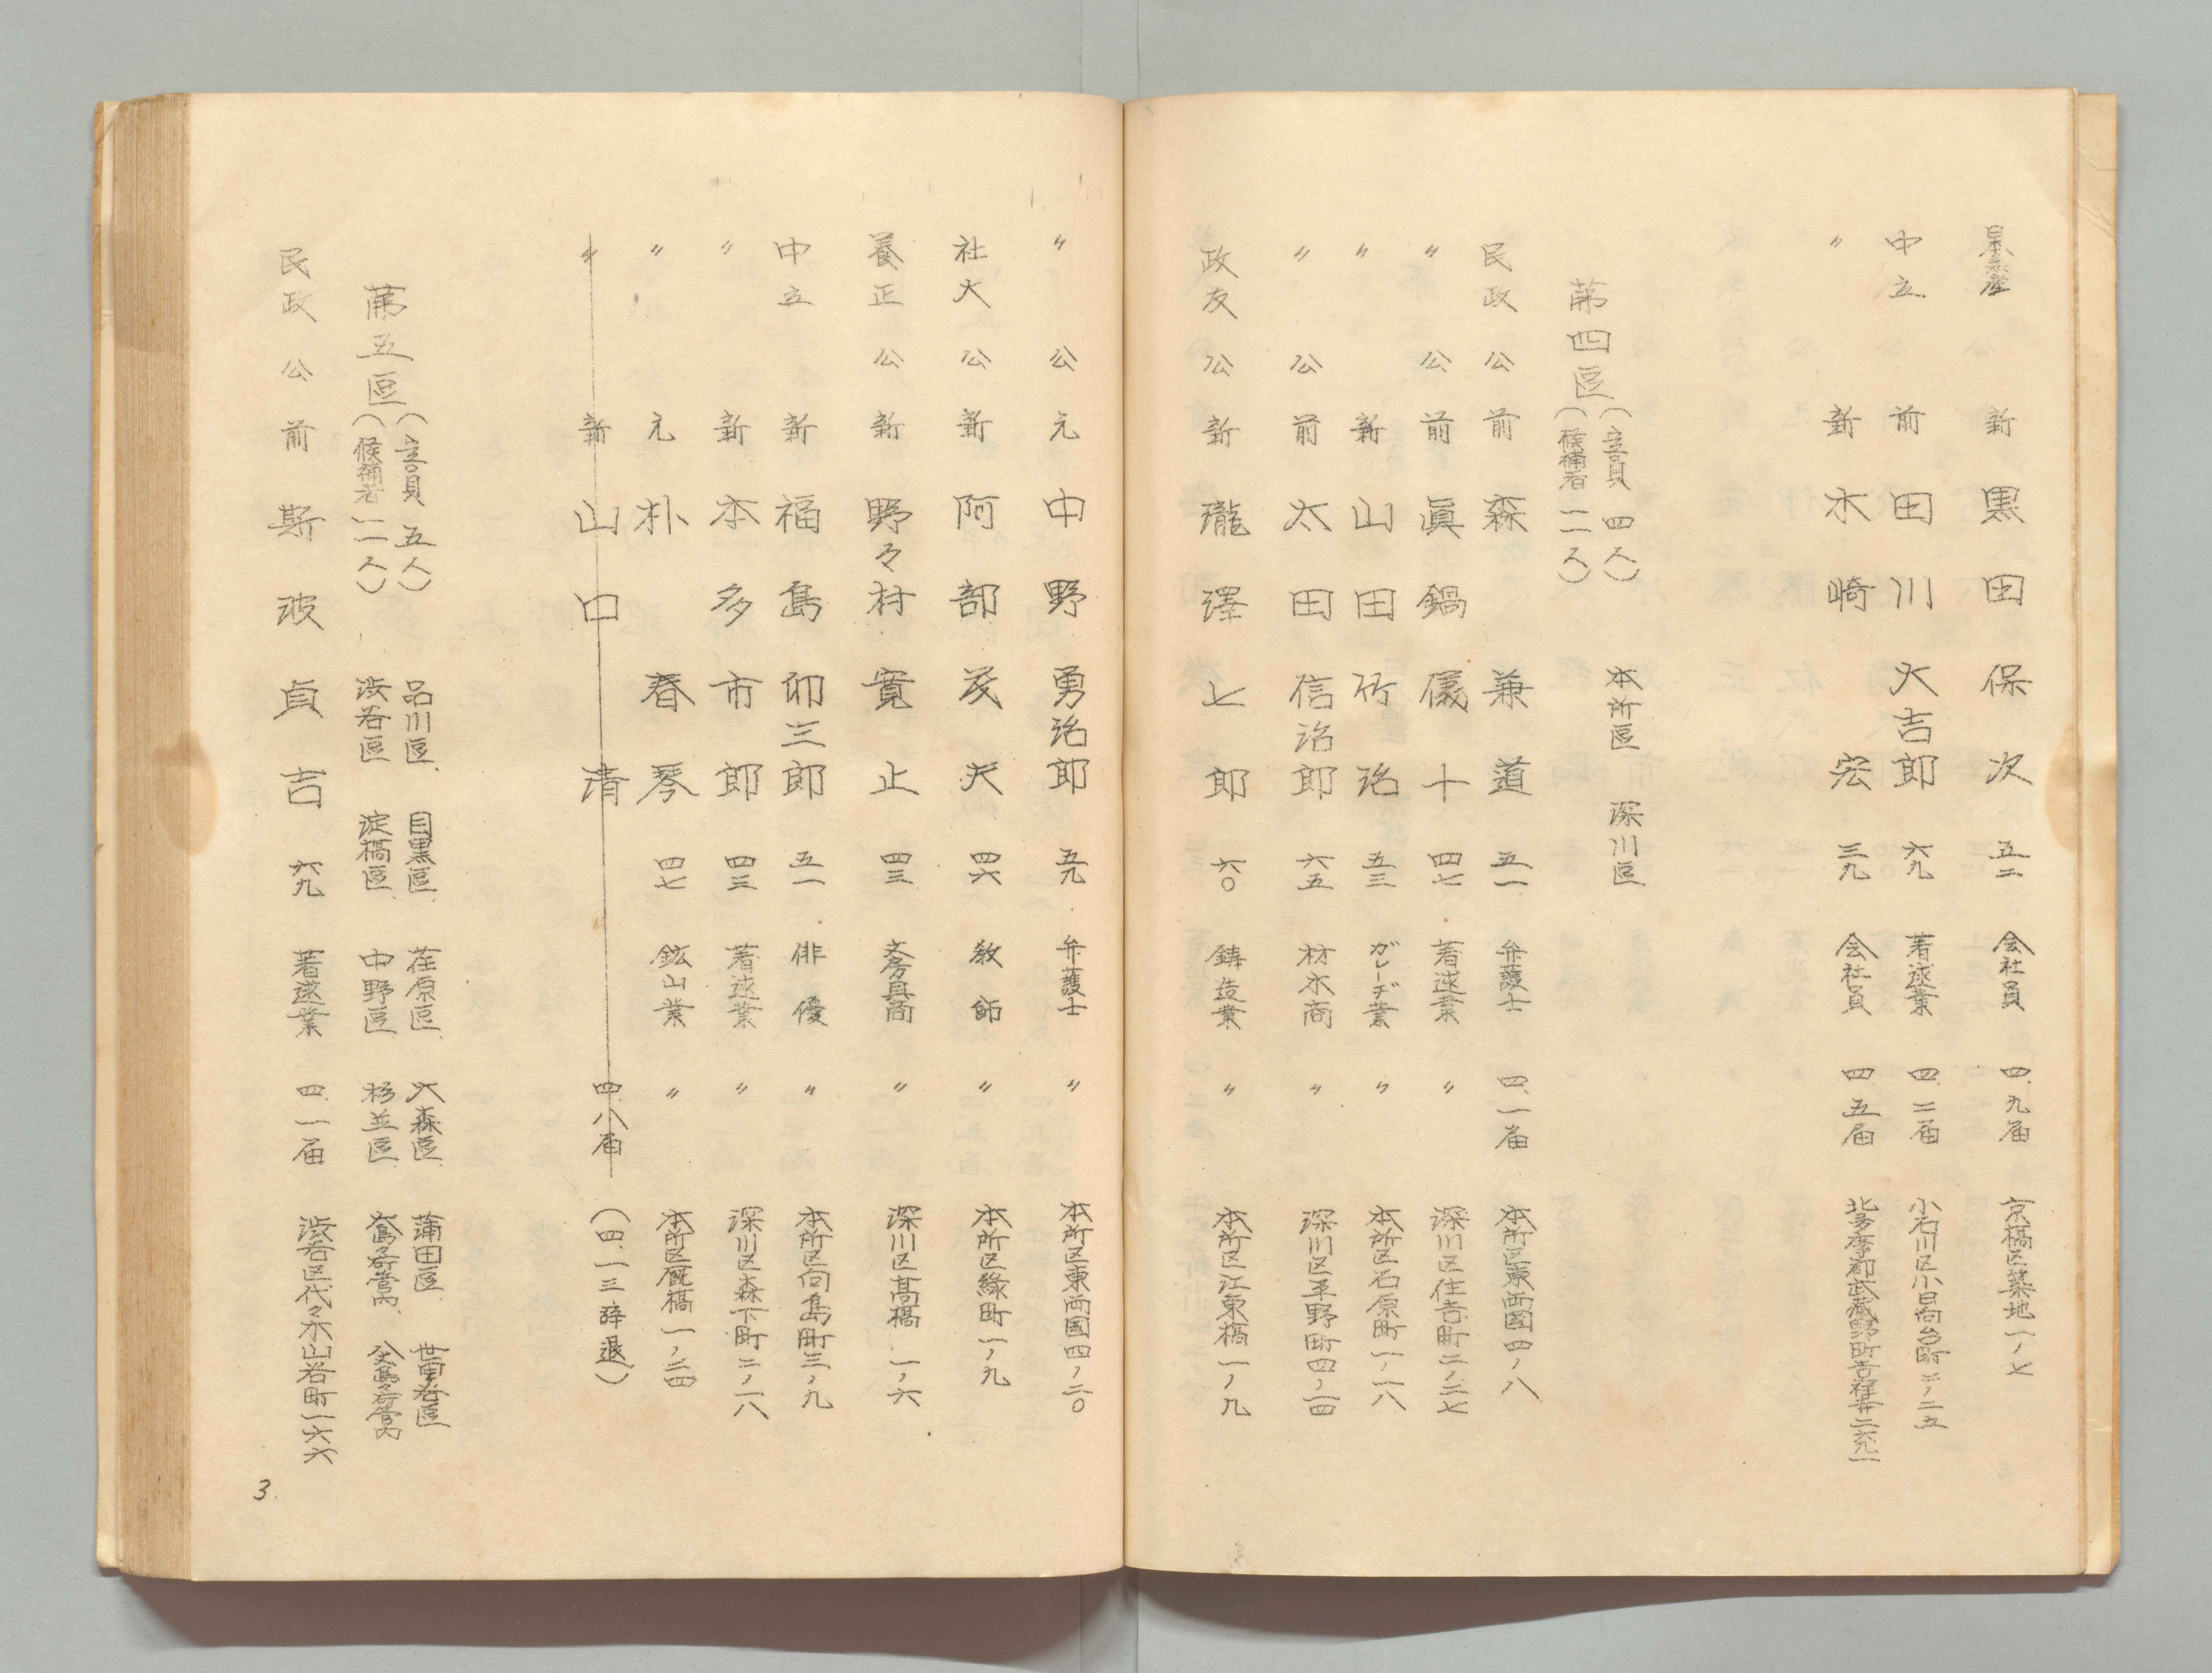 日本無産 公 新 黒田保次 五二 会社員 四、九届 京橋区築地一ノ七
中立 前 田川大吉郎 六九 著述業 四、二届 小石川区小日向台町二ノ二五
〃 新 木崎宏 三九 会社員 四、五届 北多摩郡武蔵野町吉祥寺二六九一
第四區 (定員 四人) (候補者 一二人) 本所區 深川區
民政 公 前 森兼道 五一 弁護士 四、一届 本所区東両國四ノ八
〃 公 前 眞鍋儀十 四七 著述業 〃 深川区住吉町二ノ二七
〃 新 山田竹治 五三 ガレーヂ業 〃 本所区石原町一ノ一八
〃 公 前 太田信治郎 六五 材木商 〃 深川区平野町四ノ一四
政友 公 新 瀧澤七郎 六〇 鋳造業 〃 本所区江東橋一ノ九
〃 公 元 中野勇治郎 五九 弁護士 〃 本所区東両國四ノ二〇
社大 公 新 阿部茂夫 四六 教師 〃 本所区緑町一ノ九
養正 公 新 野々村寛止 四三 文房具商 〃 深川区髙橋一ノ六
中立 新 福島卯三郎 五一 俳優 〃 本所区向島町三ノ九
〃 新 本多市郎 四三 著述業 〃 深川区森下町二ノ一八
〃 元 朴春琴 四七 鉱山業 〃 本所区厩橋一ノ二四
〃 新 山中清 四、八届 (四、一三辞退)
第五區 (定員 五人) (候補者 一一人) 品川區、目黒區、荏原區、大森區、蒲田區 世田谷區
渋谷區 淀橋區、中野區 杉並區 大島々庁管内、八丈島々庁管内
民政 公 前 斯波貞吉 六九 著述業 四、一届 渋谷区代々木山谷町一六六
3.